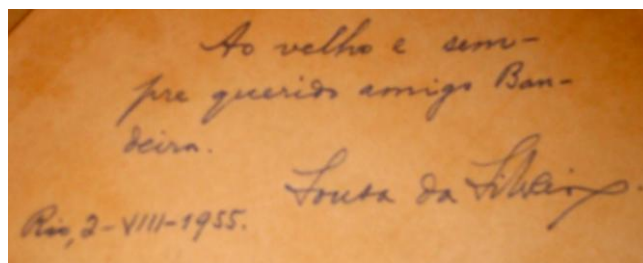 Ao velho e sem-
pre querido amigo Ban-
deira.
Sousa da Silveira
Rio, 2-VIII-1955.